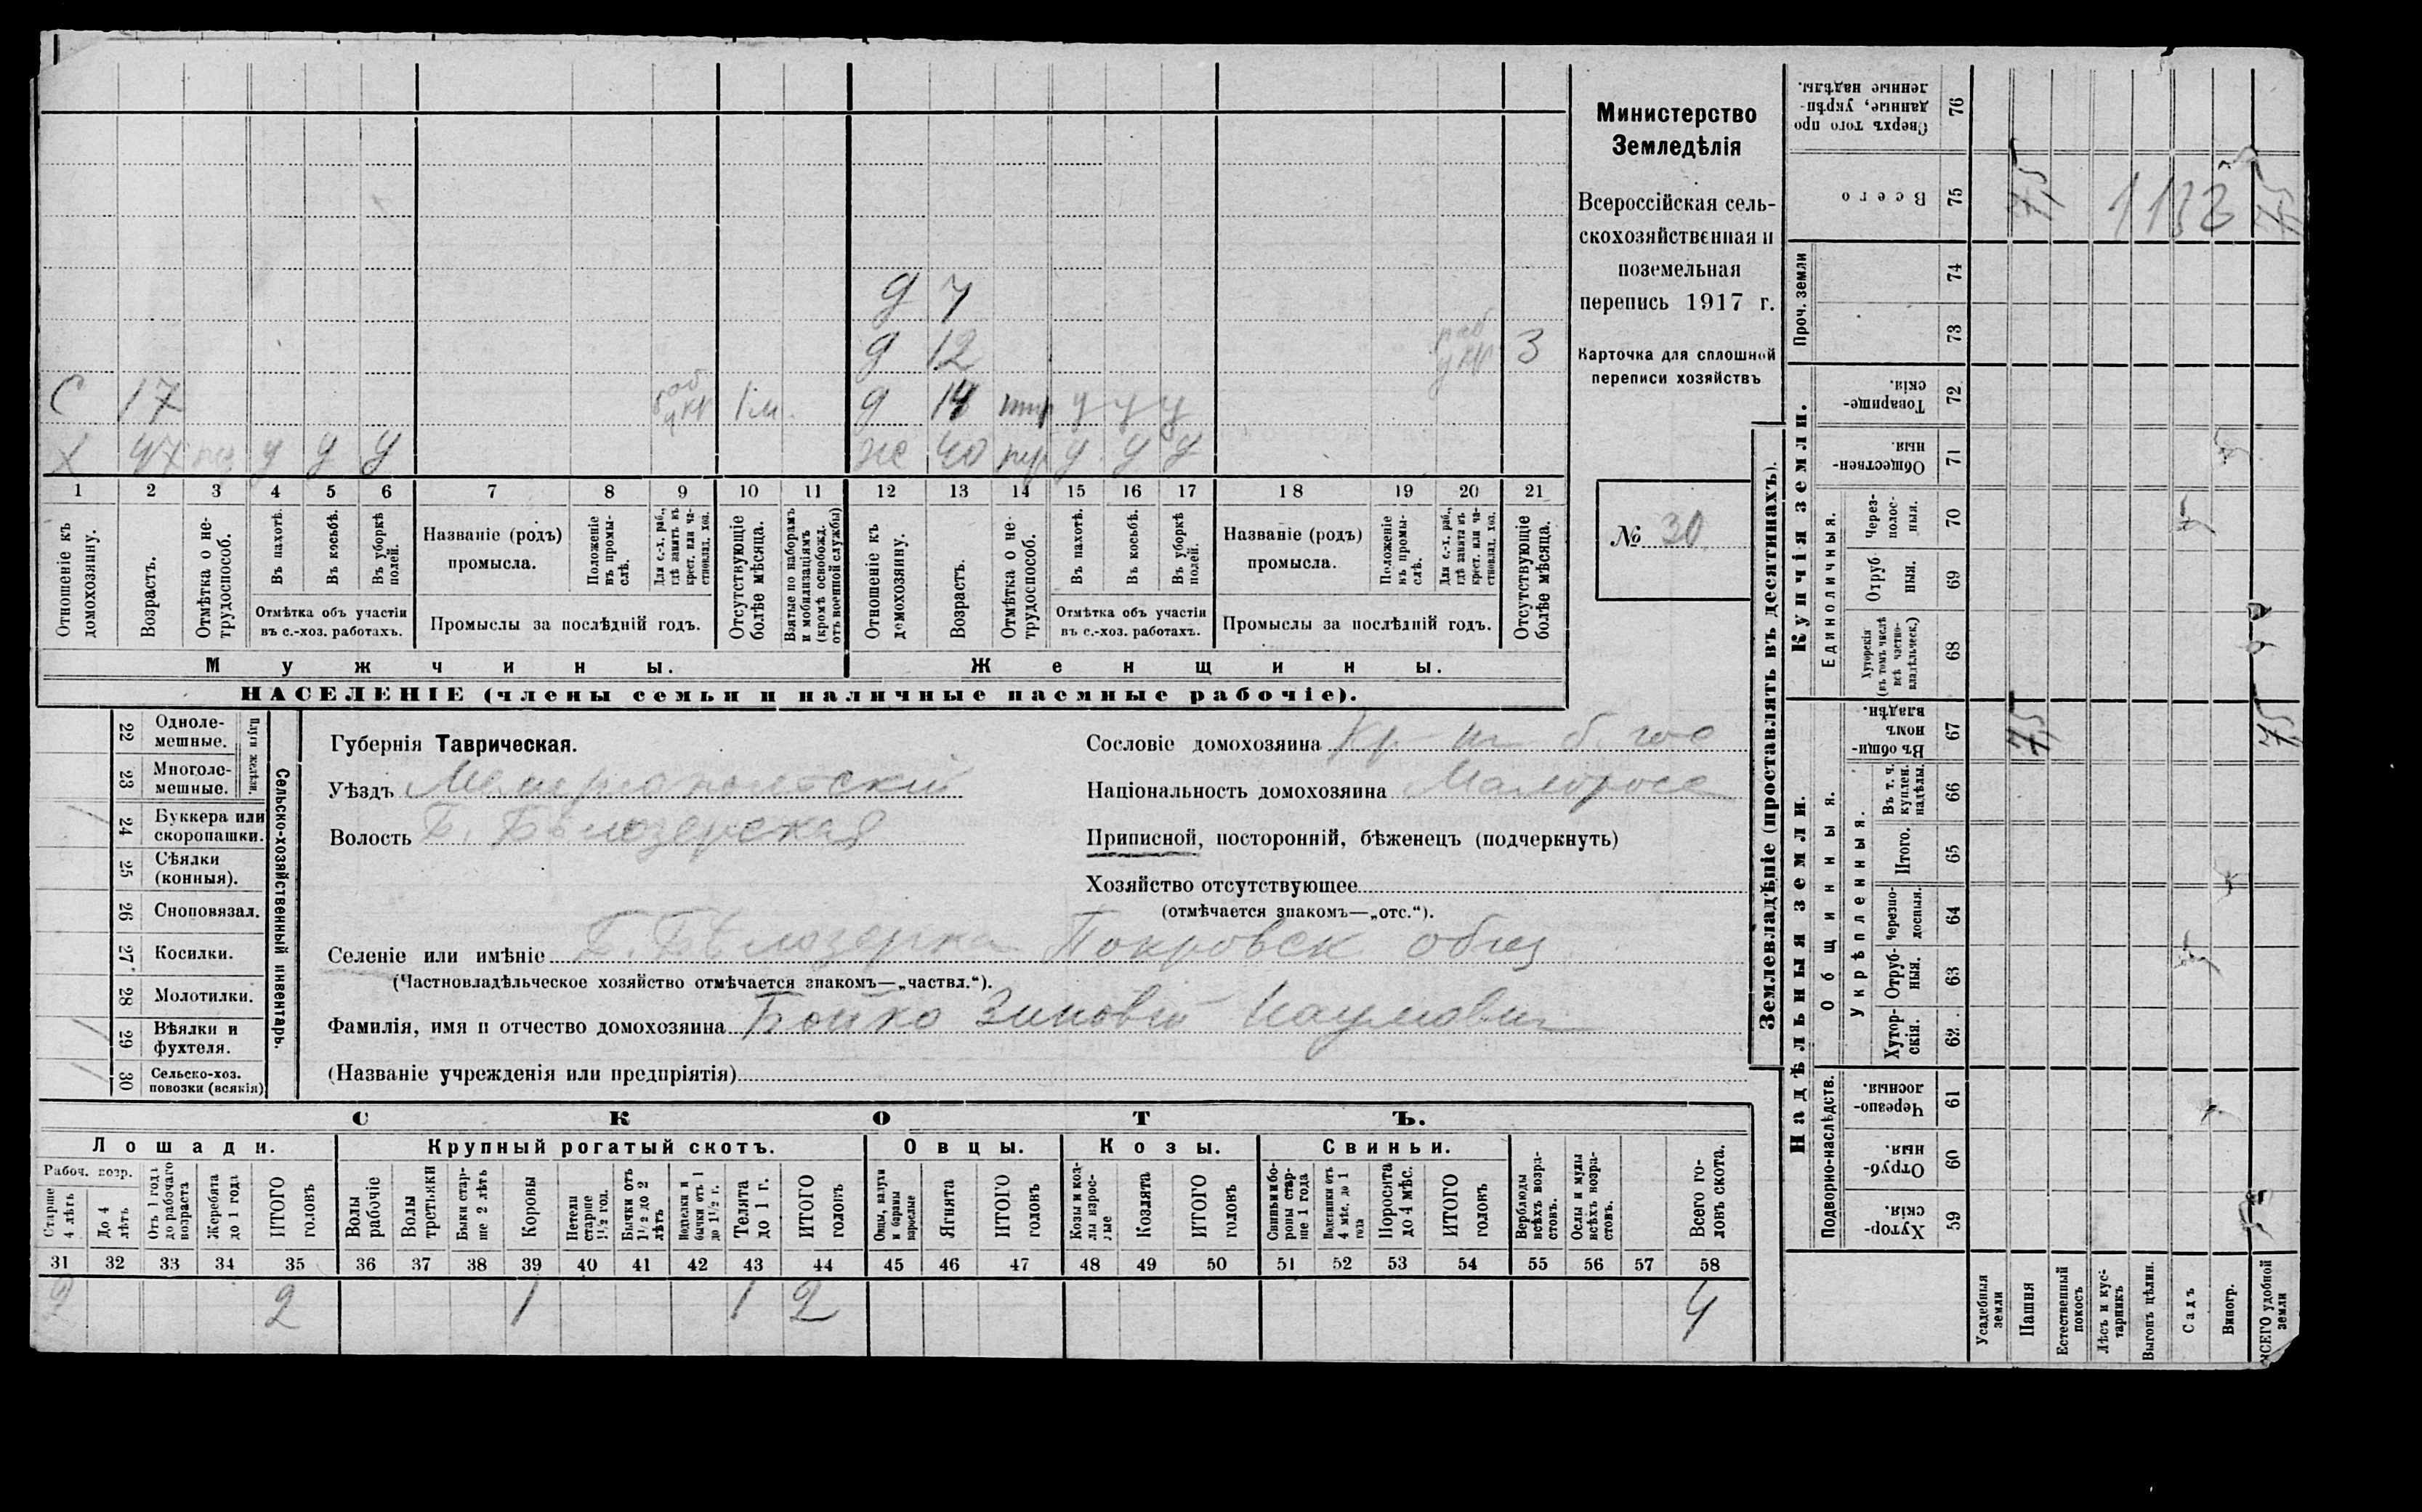 Министерство
Земледѣлія
Всероссійская сель-
скохозяйственная и
поземельная
перепись 1917 г.
Карточка для сплошной
переписи хозяйствъ
№ 30
д 7
д 12 раб 3
С 17 1 м. д 14 у у у
Х 47 у у у же 40 у у у
1 2 3 4 5 6 7 8 9 10 11 12 13 14 15 16 17 18 19 20 21
Отношеніе къ домохозяину.
Возрастъ.
Отмѣтка о не-трудоспособ.
Въ пахотѣ.
Въ косьбѣ.
Въ уборкѣ полей.
Отмѣтка объ участіи
въ с.-хоз. работахъ.
Названіе (родъ)
промысла.
Положеніе въ промы-слѣ.
Для с.-х. раб., гдѣ занятъ въ крест. или ча-стновлад. хоз.
Промыслы за послѣдній годъ.
Отсутствующіе болѣе мѣсяца.
Взятые по наборамъ и мобилизаціямъ (кромѣ освобожд. отъ военной службы)
Отношеніе къ домохозяину.
Возрастъ.
Отмѣтка о не-трудоспособ.
Въ пахотѣ.
Въ косьбѣ.
Въ уборкѣ полей.
Отмѣтка объ участіи
въ с.-хоз. работахъ.
Названіе (родъ)
промысла.
Положеніе въ промы-слѣ.
Для с.-х. раб., гдѣ занята въ крест. или ча-стновлад. хоз.
Промыслы за послѣдній годъ.
Отсутствующіе болѣе мѣсяца.
Мужчины.
Женщины.
НАСЕЛЕНІЕ (члены семьи и наличные наемные рабочіе).
22 Одноле-мешные.
23 Многоле-мешные.
Плуги желѣзн.
24 Буккера или скоропашки.
25 Сѣялки (конныя).
26 Сноповязал.
27 Косилки.
28 Молотилки.
29 Вѣялки и фухтеля.
30 Сельско-хоз. повозки (всякія)
Сельско-хозяйственный инвентарь.
Губернія Таврическая.
Уѣздъ Мелитопольскій
Волость Б. Бѣлозерская
Сословіе домохозяина Кр-н б. гос
Національность домохозяина Малоросс
Приписной, посторонній, бѣженецъ (подчеркнуть)
Хозяйство отсутствующее
(отмѣчается знакомъ—„отс.“).
Селеніе или имѣніе Б. Бѣлозерка Покровск общ
(Частновладѣльческое хозяйство отмѣчается знакомъ—„частвл.“).
Фамилія, имя и отчество домохозяина Бойко Зиновій Наумович
(Названіе учрежденія или предпріятія)
СКОТЪ.
Лошади. Крупный рогатый скотъ. Овцы. Козы. Свиньи.
Рабоч. возр.
Старше 4 лѣтъ
До 4 лѣтъ
Отъ 1 года до рабочаго возраста
Жеребята до 1 года
ИТОГО головъ
Волы рабочіе
Волы третьяки
Быки стар-ше 2 лѣтъ
Коровы
Нетели старше 1½ год.
Бычки отъ 1½ до 2 лѣтъ
Подтелки и бычки отъ 1 до 1½ г.
Телята до 1 г.
ИТОГО головъ
Овцы, валухи и бараны взрослые
Ягнята
ИТОГО головъ
Козы и коз-лы взрос-лые
Козлята
ИТОГО головъ
Свиньи и бо-ровы стар-ше 1 года
Подсвинки отъ 4 мѣс. до 1 года
Поросята до 4 мѣс.
ИТОГО головъ
Верблюды всѣхъ возра-стовъ.
Ослы и мулы всѣхъ возра-стовъ.
Всего го-ловъ скота.
31 32 33 34 35 36 37 38 39 40 41 42 43 44 45 46 47 48 49 50 51 52 53 54 55 56 57 58
2 2 1 1 2 4
Землевладѣніе (проставлять въ десятинахъ).
Надѣльныя земли.
Купчія земли.
Проч. земли
Подворно-наслѣдств.
Общинныя.
Укрѣпленныя.
Единоличныя.
Сверхъ того про данные, укрѣп-ленные надѣлы. 76
Всего 75 7,5 7,5
74
73
Товарище-скія. 72
Обществен-ныя. 71
Через-полос-ныя. 70
Отруб ныя. 69
Хуторскія (въ томъ числѣ всѣ частно-владѣльческ.) 68
Въ общин-номъ владѣн. 67 7,5 7,5
Въ т. ч. куплен. надѣлы. 66
Итого. 65
Черезпо-лосныя. 64
Отруб-ныя. 63
Хутор-скія. 62
Черезпо-лосныя. 61
Отруб-ныя. 60
Хутор-скія. 59
Усадебныя земли
Пашня
Естественный покосъ
Лѣсъ и кус-тарникъ
Выгонъ цѣлин.
Садъ
Виногр.
ВСЕГО удобной земли